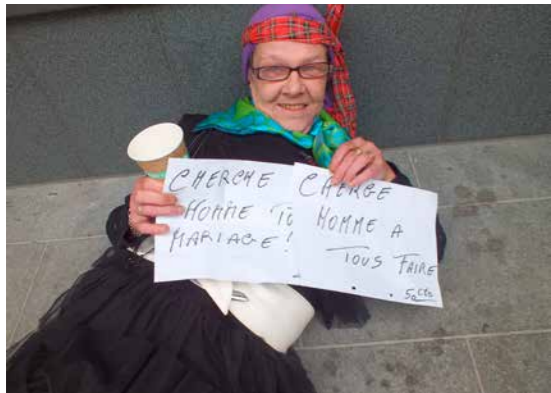 CHERCHE
HOMME
MARIAGE!
CHERGE
HOMME A
TOUS FAIRE
50 cts